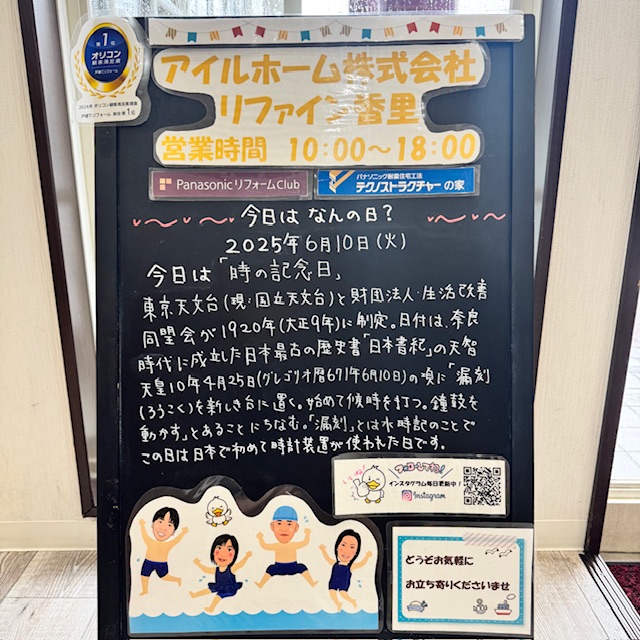 第1位
オリコン
顧客満足度
戸建てリフォーム
2024年 オリコン顧客満足度調査
戸建てリフォーム 総合 第1位
アイルホーム株式会社
リファイン香里
営業時間 10:00〜18:00
Panasonic リフォームClub
パナソニック耐震住宅工法
テクノストラクチャーの家
今日は なんの日?
2025年6月10日(火)
今日は「時の記念日」
東京天文台(現:国立天文台)と財団法人・生活改善
同盟会が1920年(大正9年)に制定。日付は、奈良
時代に成立した日本最古の歴史書「日本書紀」の天智
天皇10年4月25日(グレゴリオ暦671年6月10日)の項に「漏刻
(ろうこく)を新しき台に置く。始めて候時を打つ。鐘鼓を
動かす」とあることにちなむ。「漏刻」とは水時記のことで
この日は日本で初めて時計装置が使われた日です。
フォローしてね!
いいね!
インスタグラム毎日更新中!
Instagram
どうぞお気軽に
お立ち寄りくださいませ